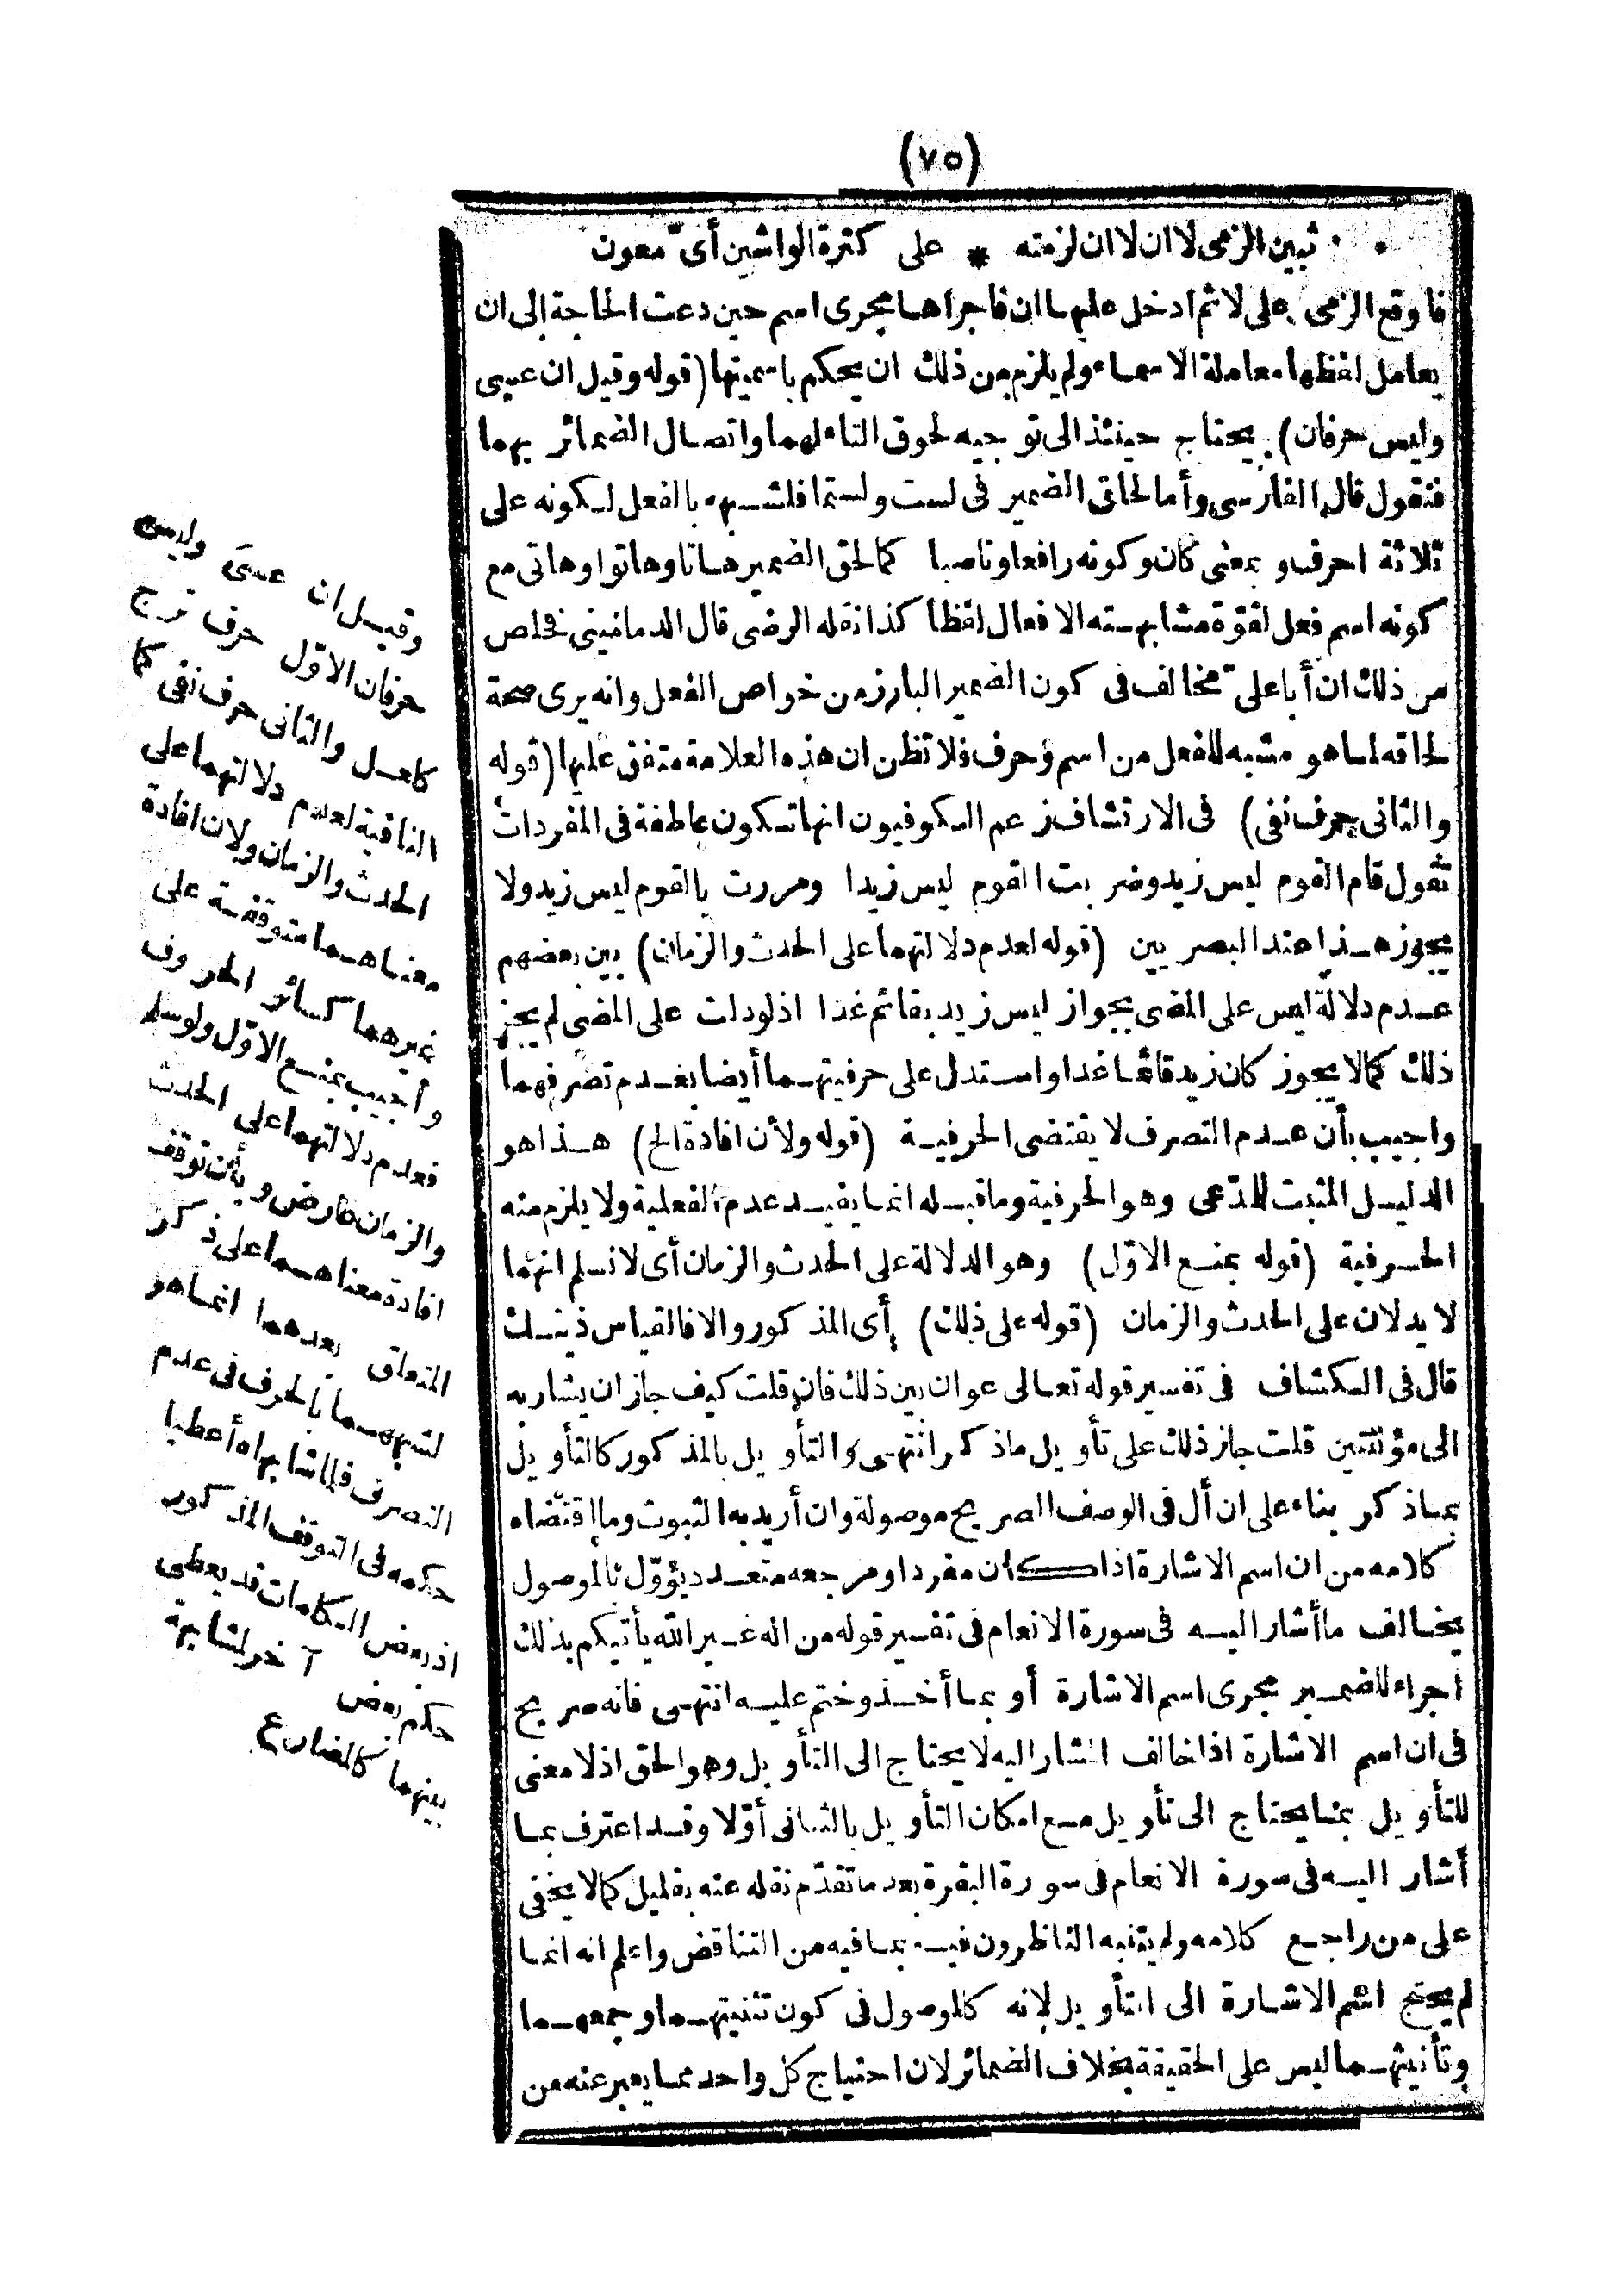 (٧٥)
بثين الزمى لا ان لا ان لزمته * على كثرة الواشين أىّ معون
فاوقع الزمى على لا ثم ادخل عليها ان فاجراها مجرى اسم حين دعت الحاجة الى ان
يعامل لفظها معاملة الاسماء ولم يلزم من ذلك ان يحكم باسميتها (قوله وقيل ان عسى
وليس حرفان) يحتاج حينئذ الى توجيه لحوق التاء لهما واتصال الضمائر بهما
فنقول قال الفارسى وأما لحاق الضمير فى لست ولستما فلشبهه بالفعل لكونه على
ثلاثة احرف و بمعنى كان وكونه رافعا وناصبا كما لحق الضمير هاتا وهاتوا وهاتى مع
كونه اسم فعل لقوة مشابهته الافعال لفظا كذا نقله الرضى قال الدمامينى فخلص
من ذلك ان أبا على مخالف فى كون الضمير البارز من خواص الفعل وانه يرى صحة
لحاقه لما هو مشبه للفعل من اسم وحرف فلا تظن ان هذه العلامة متفق عليها (قوله
والثانى حرف نفى) فى الارتشاف زعم الكوفيون انها تكون عاطفة فى المفردات
تقول قام القوم ليس زيد وضربت القوم ليس زيدا ومررت بالقوم ليس زيد ولا
يجوز هذا عند البصريين (قوله لعدم دلالتهما على الحدث والزمان) بين بعضهم
عدم دلالة ليس على المضى بجواز ليس زيد بقائم غدا اذ لو دلت على المضى لم يجز
ذلك كما لا يجوز كان زيد قائما غدا واستدل على حرفيتهما أيضا بعدم تصرفهما
واجيب بأن عدم التصرف لا يقتضى الحرفية (قوله ولأن افادة الخ) هذا هو
الدليل المثبت للمدّعى وهو الحرفية وما قبله انما يفيد عدم الفعلية ولا يلزم منه
الحرفية (قوله بمنع الاوّل) وهو الدلالة على الحدث والزمان أى لا نسلم انهما
لا يدلان على الحدث والزمان (قوله على ذلك) أى المذكور والا فالقياس ذينك
قال فى الكشاف فى تفسير قوله تعالى عوان بين ذلك فان قلت كيف جاز ان يشار به
الى مؤنثتين قلت جاز ذلك على تأويل ماذكر انتهى والتأويل بالمذكور كالتأويل
بماذكر بناء على ان أل فى الوصف الصريح موصولة وان أريد به الثبوت وما اقتضاه
كلامه من ان اسم الاشارة اذا كان مفردا ومرجعه متعدد يؤوّل بالموصول
يخالف ما أشار اليه فى سورة الانعام فى تفسير قوله من اله غير الله يأتيكم بذلك
اجراء للضمير مجرى اسم الاشارة أو بما أخذ وختم عليه انتهى فانه صريح
فى ان اسم الاشارة اذا خالف المشار اليه لا يحتاج الى التأويل وهو الحق اذ لا معنى
للتأويل بما يحتاج الى تأويل مع امكان التأويل بالثانى أوّلا وقد اعترف بما
أشار اليه فى سورة الانعام فى سورة البقرة بعد ما تقدّم نقله عنه بقليل كما لا يخفى
على من راجع كلامه ولم يتنبه الناظرون فيه بما فيه من التناقض واعلم انه انما
لم يحتج اسم الاشارة الى التأويل لانه كالموصول فى كون تثنيتهما وجمعهما
وتأنيثهما ليس على الحقيقة بخلاف الضمائر لان احتياج كل واحد مما يعبر عنه من
وقيل ان عسىَ وليس
حرفان الاوّل حرف ترج
كلعل والثانى حرف نفى كما
النافية لعدم دلالتهما على
الحدث والزمان ولان افادة
معناهما متوقفة على
غيرهما كسائر الحروف
وأجيب بمنع الاوّل ولو سلم
فعدم دلالتهما على الحدث
والزمان عارض وبأن توقف
افادة معناهما على ذكر
المتعلق بعدهما انماهو
لشبههما بالحرف فى عدم
التصرف فلما شابهاه أعطيا
حكمه فى التوقف المذكور
اذ بعض الكلمات قد يعطى
حكم بعض آخر لمشابهة
بينهما كالمضارع